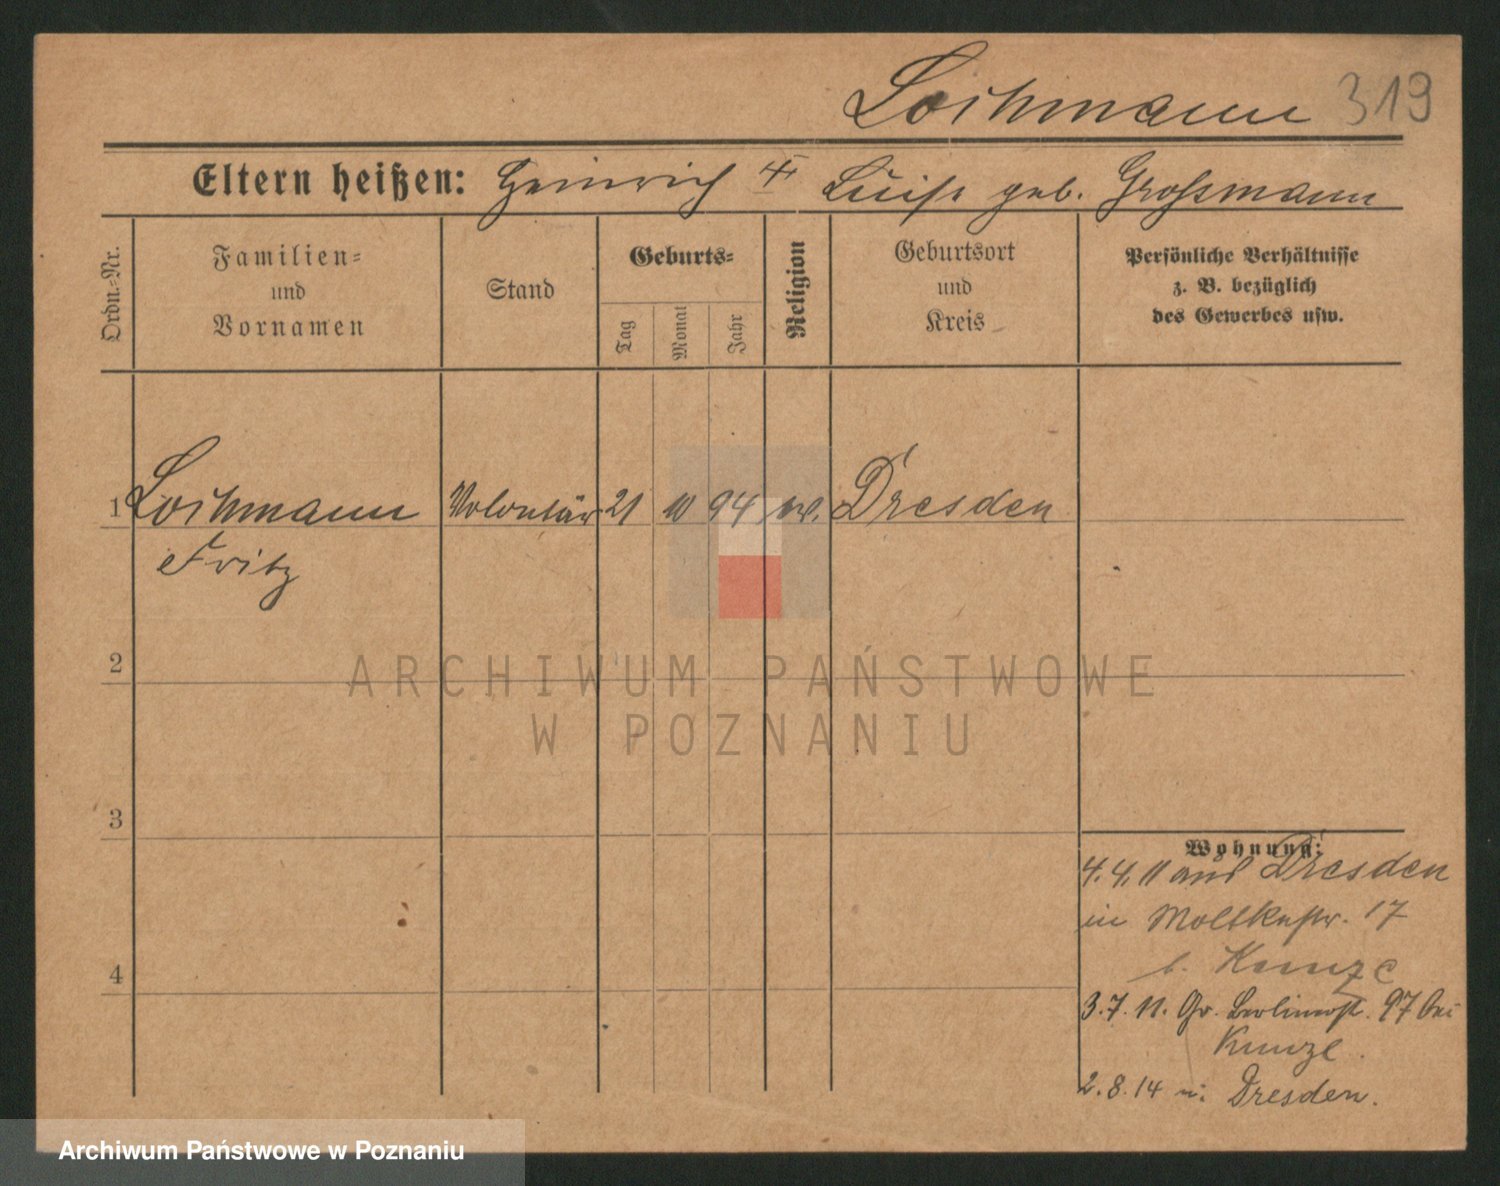 Lochmann 319
Eltern heißen: Heinrich Luise geb. Grossmann
Ordn.-Nr.
Familien-
und
Vornamen
Stand
Geburts-
Tag
Monat
Jahr
Religion
Geburtsort
und
Kreis
Persönliche Verhältnisse
z. B. bezüglich
des Gewerbes usw.
1 Lochmann Volontär 21 10 94 ev. Dresden
Fritz
2
3
4
Wohnung:
4.4.11 aus Dresden
in Moltkestr. 17
b. Kunze
3.7.11. Gr. Berlinerst. 97 bei
Kunze.
2.8.14 n. Dresden.
ARCHIWUM PAŃSTWOWE
W POZNANIU
Archiwum Państwowe w Poznaniu